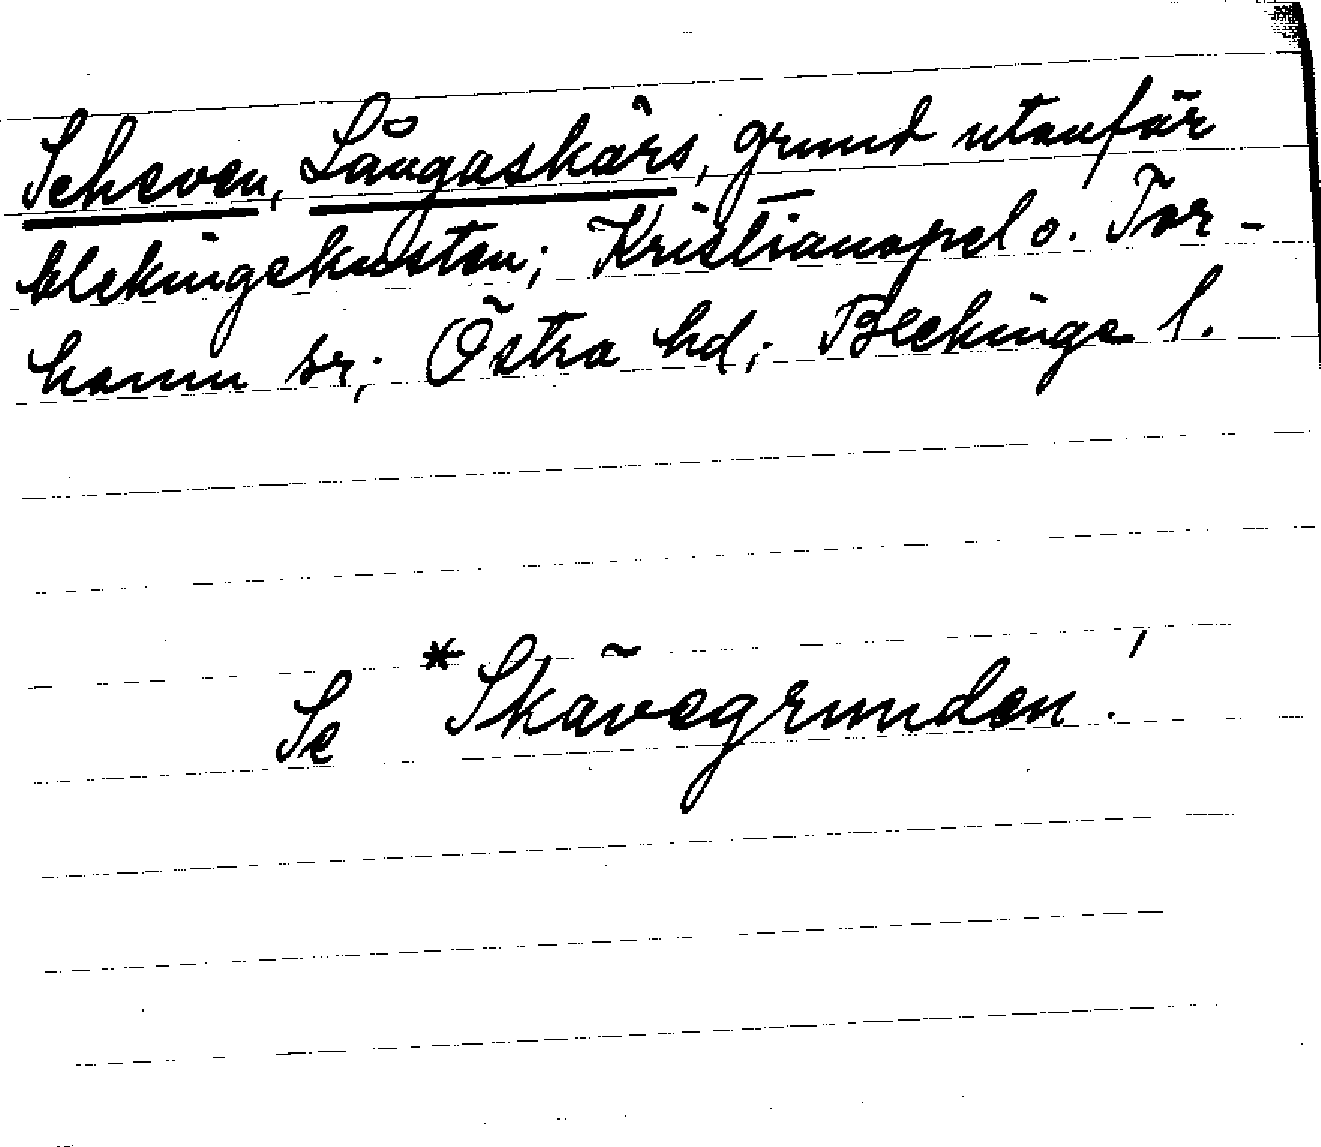 Scheven, Långaskärs, grund utanför
blekingekusten; Kristianopel o. Tor-
hamn sr; Östra hd; Blekinge l.
Se *Skävegrunden!